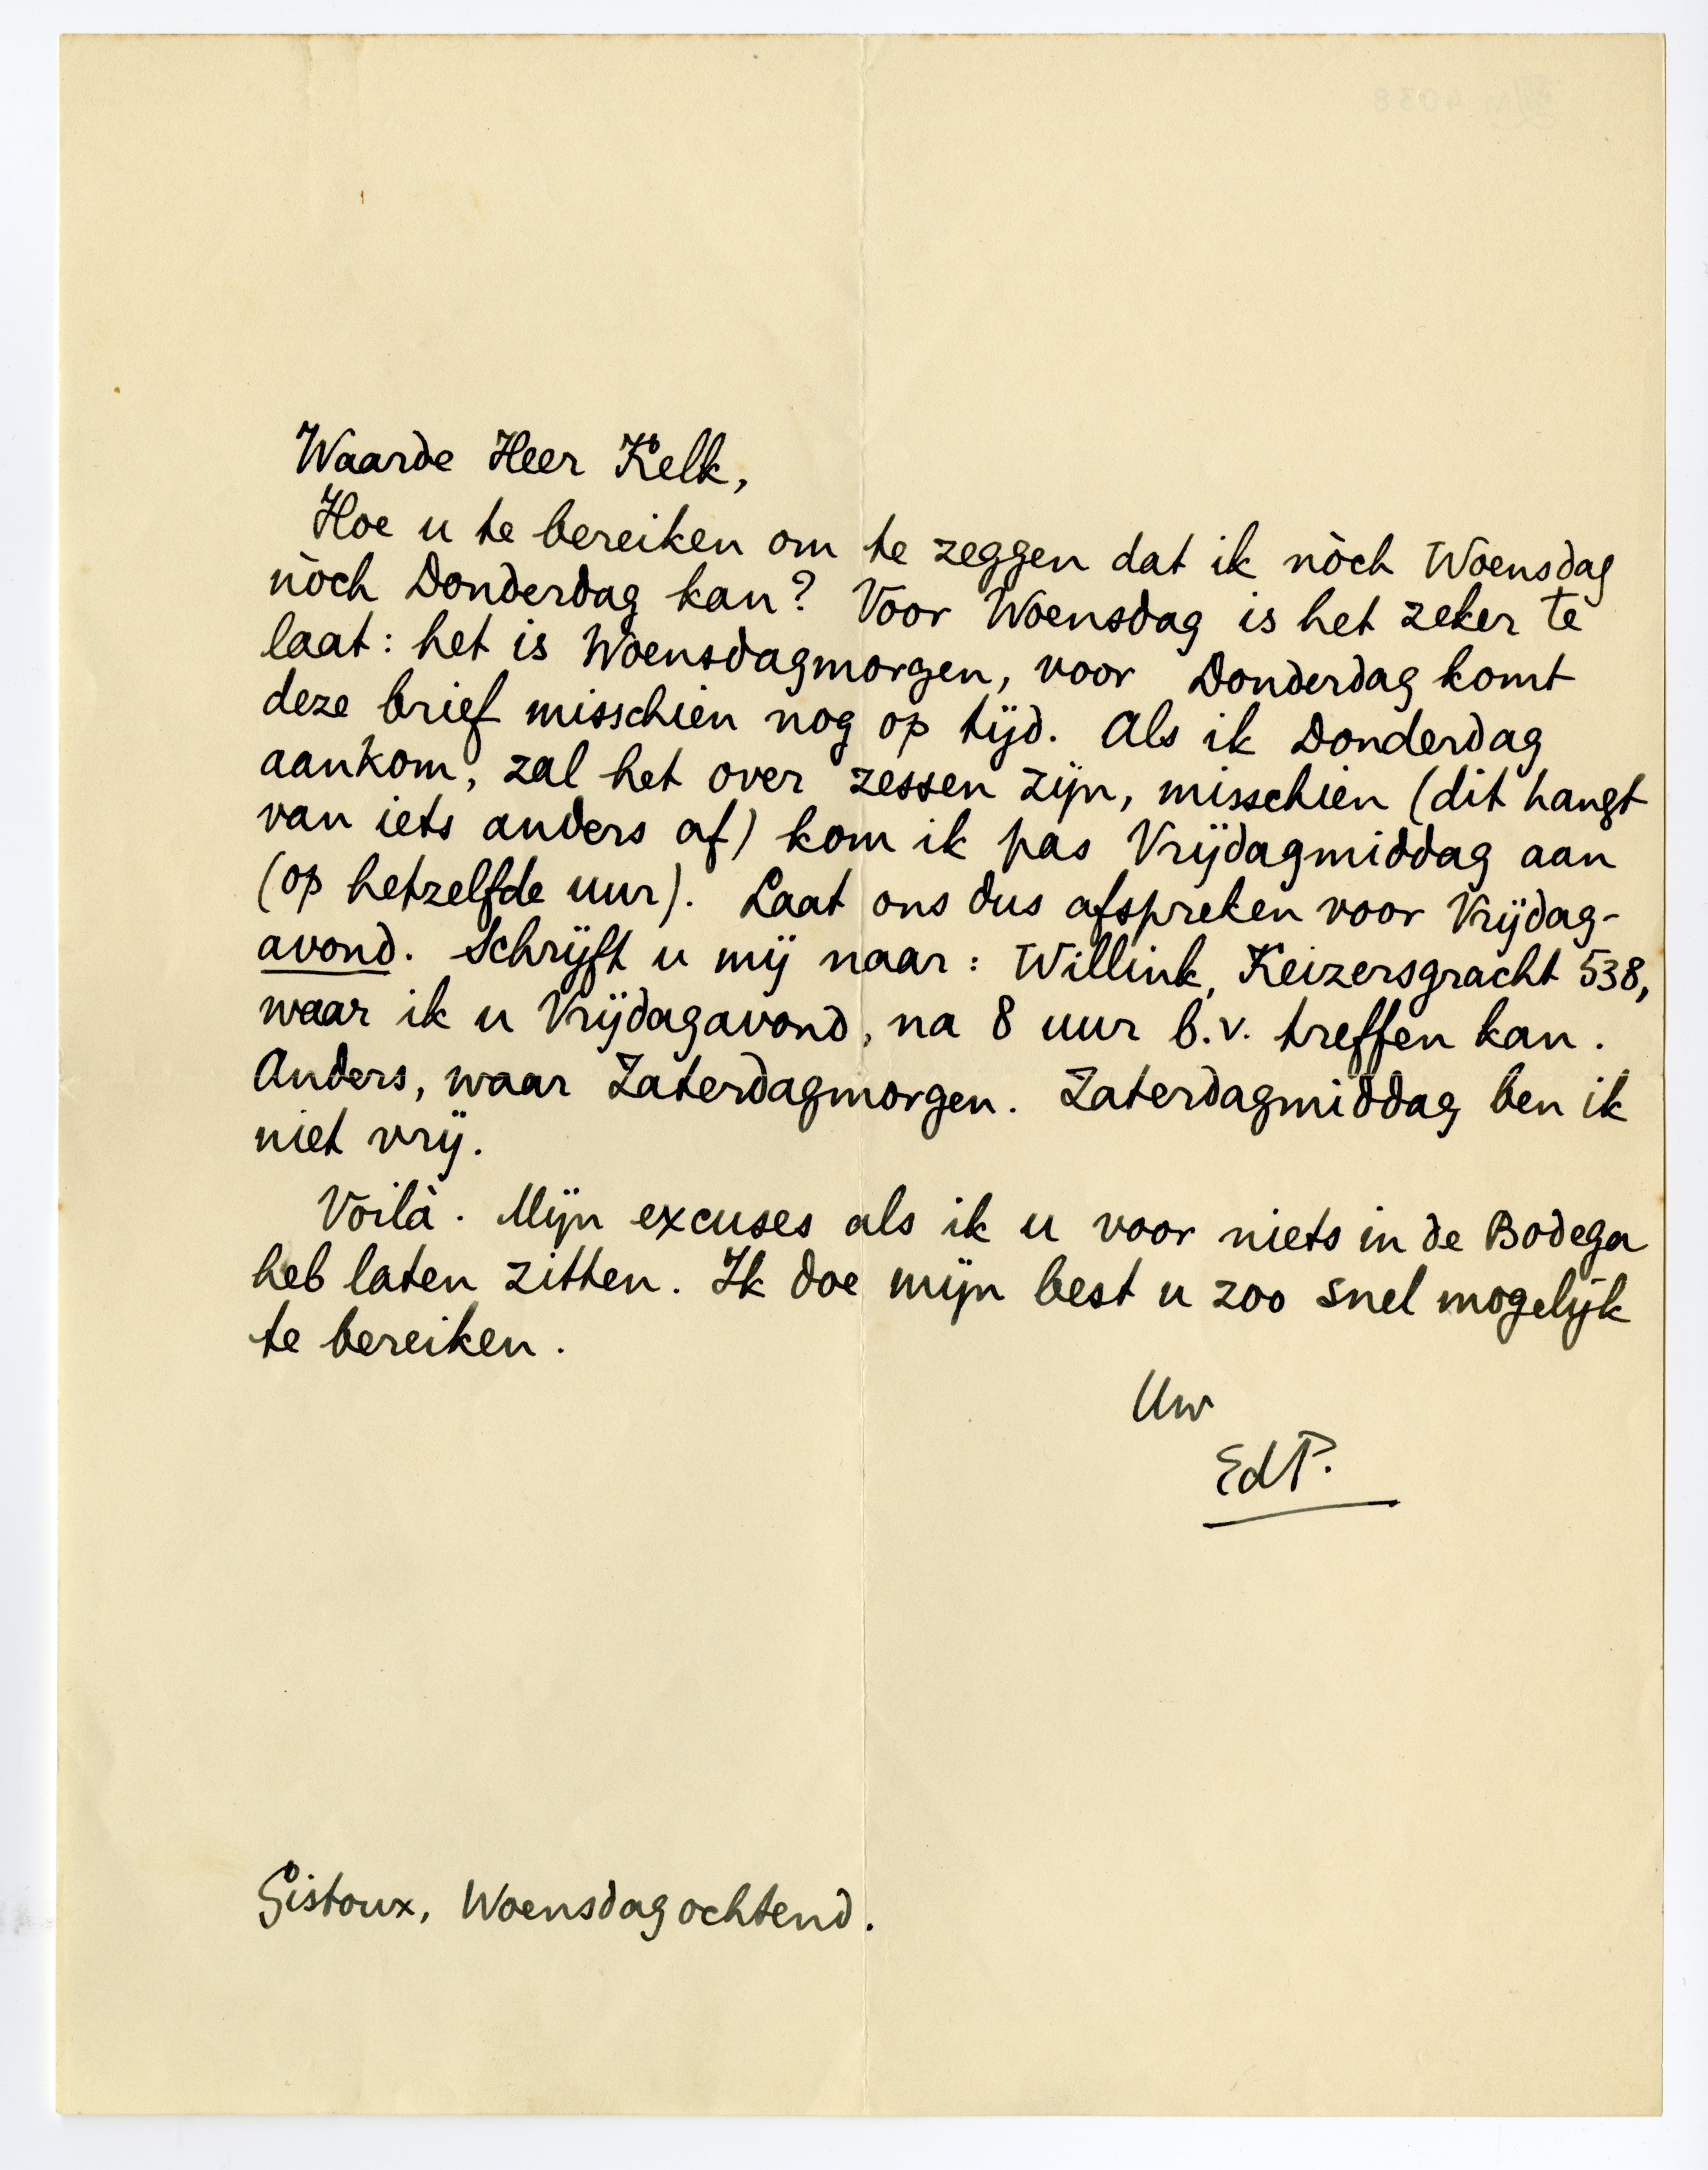 Waarde Heer Kelk,
Hoe u te bereiken om te zeggen dat ik nòch Woensdag
nòch Donderdag kan? Voor Woensdag is het zeker te
laat: het is Woensdagmorgen, voor Donderdag komt
deze brief misschien nog op tijd. Als ik Donderdag
aankom, zal het over zessen zijn, misschien (dit hangt
van iets anders af) kom ik pas Vrijdagmiddag aan
(op hetzelfde uur). Laat ons dus afspreken voor Vrijdag-
avond. Schrijft u mij naar: Willink, Keizersgracht 538,
waar ik u Vrijdagavond, na 8 uur b.v. treffen kan.
Anders, waar Zaterdagmorgen. Zaterdagmiddag ben ik
niet vrij.
Voilà. Mijn excuses als ik u voor niets in de Bodega
heb laten zitten. Ik doe mijn best u zoo snel mogelijk
te bereiken.
Uw
EdP.
Gistoux, Woensdagochtend.